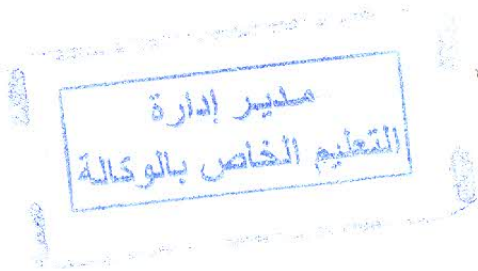 مدير إدارة
التعليم الخاص بالوكالة